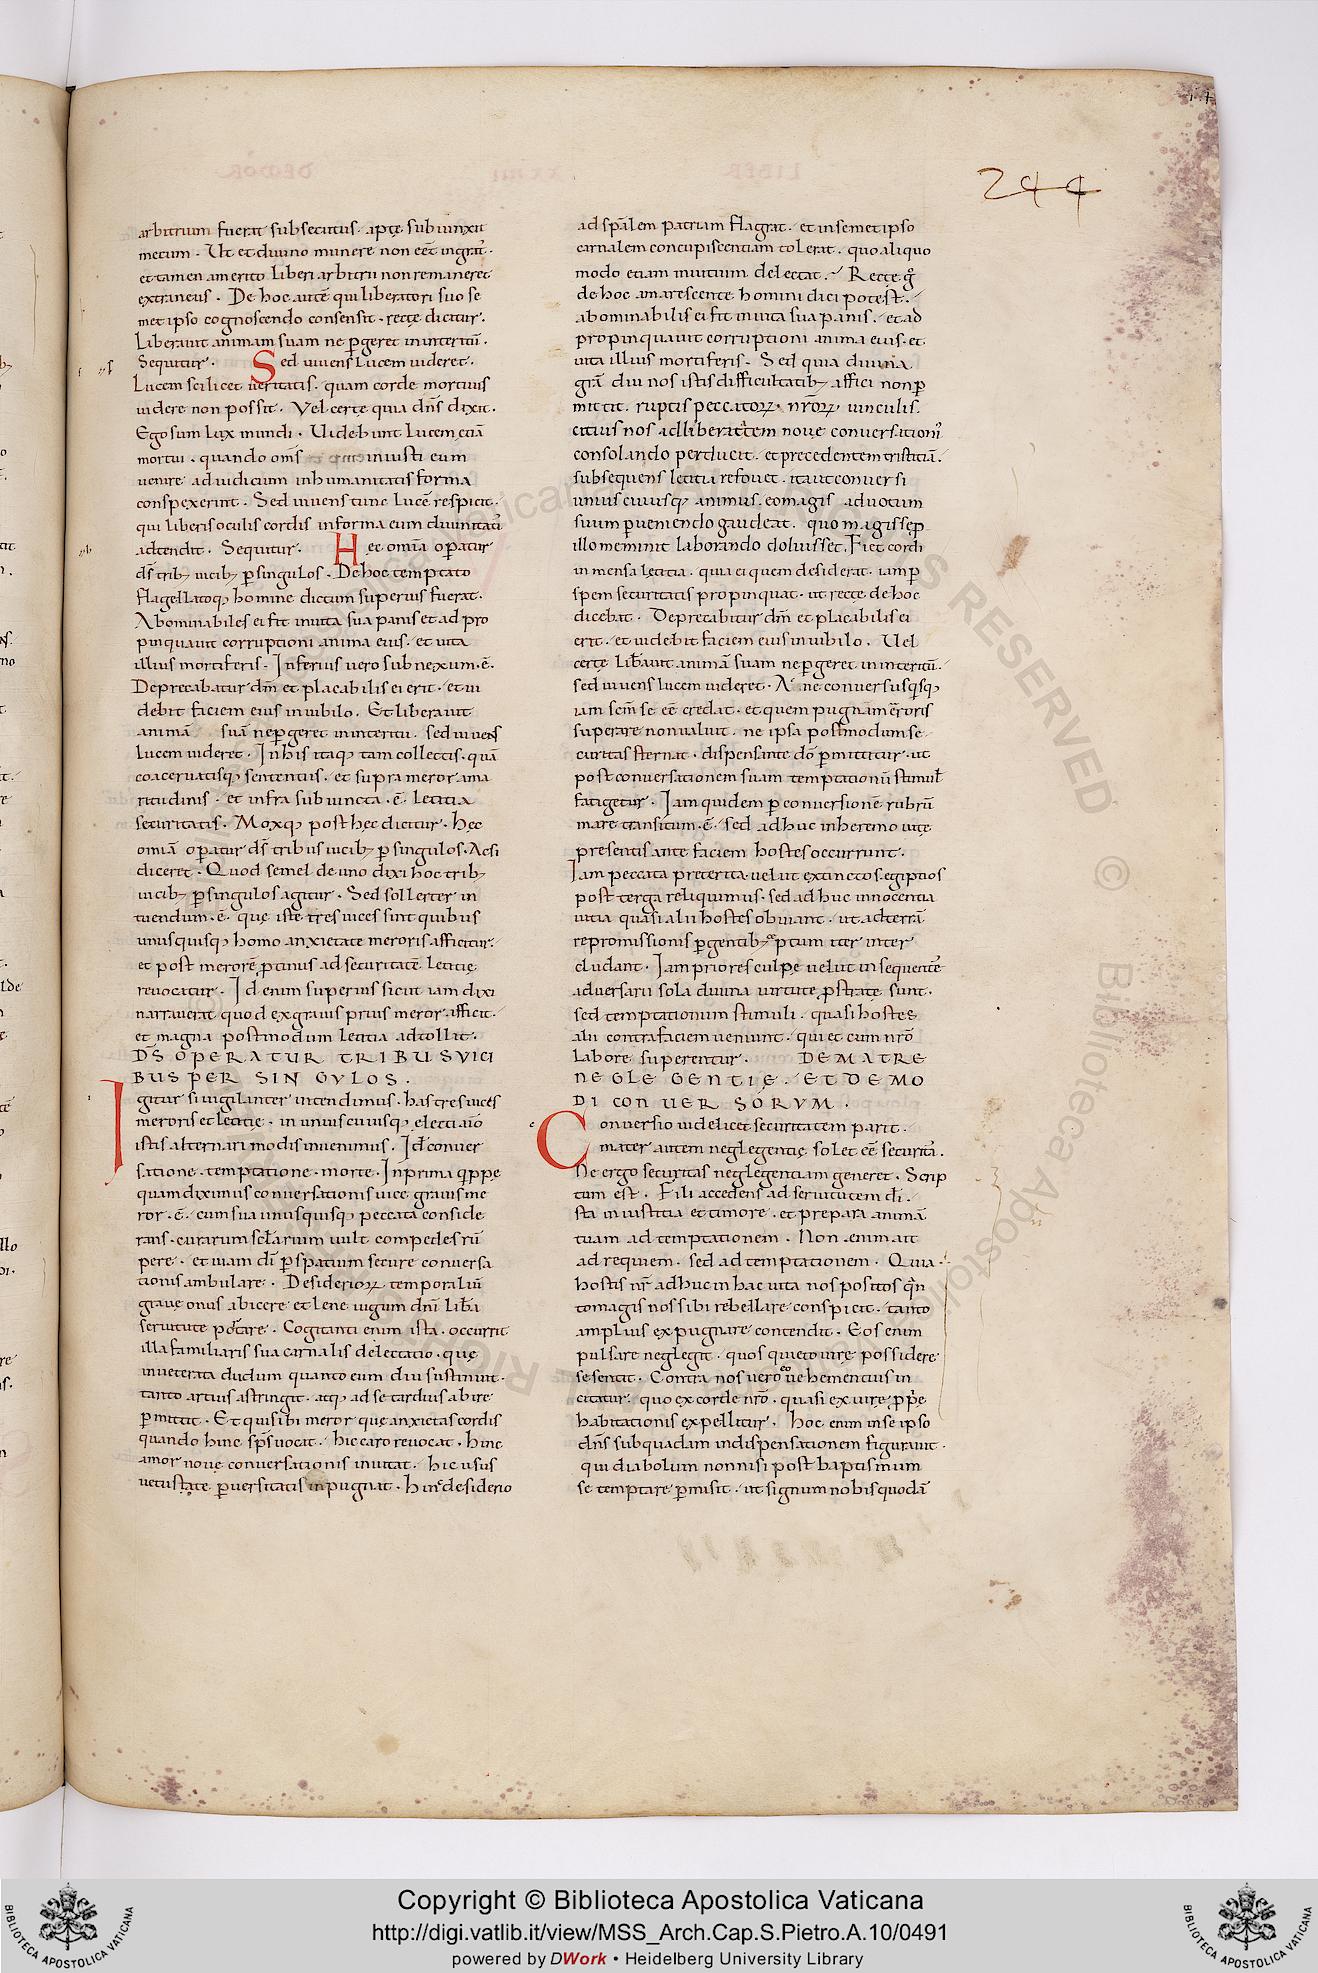 244
arbitrium fuerat subsecutus · aptę subiunxit
mecum · Ut et divino munere non eēt ingrat᷒ ·
et tamen a merito liberi arbitrii non remaneret
extraneus · De hoc autē qui liberatori suo se
met ipso cognoscendo consensit · recte dicitur ·
Liberavit animam suam ne p̄geret in interitū ·
Sequitur · Sed vivens lucem videret ·
Lucem scilicet veritatis · quam corde mortuus
videre non possit · Vel certe quia dn̄s dixit ·
Ego sum lux mundi · Videbunt lucem etiā
mortui · quando om̄s iniusti eum
venire ad iudicium in humanitatis forma
conspexerint · Sed vivens tunc lucē respicit ·
qui liberis oculis cordis in forma eum divinitatis
adtendit · Sequitur · Hęc omīa op̄atur
ds̄ trib; vicib; p̄ singulos · De hoc temptato
flagellatoq; homine dictum superius fuerat ·
Abominabiles ei fit in vita sua panis et ad pro
pinquavit corruptioni anima eius · et vita
illius mortiferis · Inferius vero subnexum · ē ·
Deprecabatur dm̄ et placabilis ei erit · et vi
debit faciem eius in iubilo · Et liberavit
animā suā ne p̄geret in interitū · sed vivens
lucem videret · In his itaq; tam collectis · quā
coacervatisq; sententiis · et supra meror ama
ritudinis · et infra subiuncta · ē · letitia
securitatis · Moxq; post hęc dicitur · Hęc
omīa op̄atur ds̄ tribus vicib; p̄ singulos · Acsi
diceret · Quod semel de uno dixi hoc trib;
vicib; p̄ singulos agitur · Sed sollerter in
tuendum · ē · quę iste tres vices sint quibus
unusquisq; homo anxietate meroris afficitur ·
et post merorē p̄tinus ad securitatē letitię
revocatur · Id enim superius sicut iam dixi
narraverat quod ex gravis prius meror afficit ·
et magna postmodum letitia adtollat ·
DS̄ OPERATUR TRIBUS VICI
BUS PER SINGVLOS ·
Igitur si vigilanter intendimus · has tres vices
meroris et letitię · in uniuscuiusq; electi aīo
istis alternari modis invenimus · Id ē conver
satione · temptatione · morte · In prima q̄ppe
quam diximus conversationis vice gravis me
ror · ē · cum sua unusquisq; peccata conside
rans · curarum sclarium vult compedes rū
pere · et viam dī p̄ spatium secure conversa
tionis ambulare · Desiderioꝝ temporaliū
grave onus abicere et lene iugum dn̄i libā
servitute portare · Cogitanti enim ista · occurrit
illa familiaris sua carnalis delectatio · quę
inveterata dudum quanto eum diu sustinuit ·
tanto artius astringit · atq; ad se tardius abire
p̄mittit · Et quis ibi meror quę anxietas cordis
quando hinc sps̄ vocat · hic caro revocat · hinc
amor novę conversationis invitat · hic usus
vetustate p̄versitatis inpugnat · hinc desiderio
ad spālem patriam flagrat · et in semet ipso
carnalem concupiscentiam tolerat · quo aliquo
modo etiam invitum delectat · Recte g̊
de hoc amarescente homini dici potest ·
abominabilis ei fit in vita sua panis · et ad
propinquavit corruptioni anima eius · et
vita illius mortiferis · Sed quia divina
grā diu nos istis difficultatib; affici non p̄
mittit · ruptis peccatoꝝ · nr̄oꝝ vinculis ·
citius nos ad liberatem nove conversationis
consolando perducit · et precedentem tristitiā ·
subsequens letitia refovet · ita ut conversi
uniuscuiusq; animus · eo magis ad votum
suum p̄veniendo gaudeat · quo magis sep̄
illo meminit laborando doluisset · Fiet cordi
in mensa letitia · quia ei quem desiderat · iam p̄
spem securitatis propinquat · ut recte de hoc
dicebat · Deprecabitur dm̄ et placabilis ei
erit · et videbit faciem eius in iubilo · Vel
certe liberavit animā suam ne p̄geret in interitū ·
sed vivens lucem videret · Ac ne conversus quisq;
iam scm̄ se eē credat · et quem pugnam ēroris
superare non valuit · ne ipsa postmodum se
curitas sternat · dispensante dō p̄mittitur · ut
post conversationem suam temptationū stimul
fatigetur · Iam quidem p̄ conversionē rubrū
mare transitum · ē · sed adhuc in heremo vitę
presentis ante faciem hostes occurrunt ·
Iam peccata preterita velut extinctos egiptios
post terga reliquimus · sed adhuc innocentia
vitia quasi alii hostes obviant · ut ad terrā
repromissionis p̄gentib; ceptum iter inter
cludant · Iam priores culpe velut insequentes
adversarii sola divina virtute p̄stratę sunt ·
sed temptationum stimuli · quasi hostes
alii contra faciem veniunt · qui et cum nr̄o
labore superentur · DE MATRE
NEGLEGENTIE · ET DE MO
DI CONVERSORVM ·
Conversio videlicet securitatem parit ·
mater autem neglegentię solet eē securita᷒ ·
Ne ergo securitas neglegentiam generet · Scrip
tum est · Fili accedens ad servitutem dī ·
sta in iustitia et timore · et prepara animā
tuam ad temptationem · Non enim ait
ad requiem · sed ad temptationem · Quia
hostis nr̄ adhuc in hac vita nos positos q̄n
to magis nos sibi rebellare conspicit · tanto
amplius expugnare contendit · Eos enim
pulsare neglegit · quos quieto iure possidere
se sentit · Contra nos vero eo vehementius in
citatur · quo ex corde nr̄o · quasi ex iure p̄p̄e
habitationis expellitur · Hoc enim in se ipso
dn̄s sub quadam indispensationem figuravit ·
qui diabolum non nisi post baptismum
se temptare p̄misit · ut signum nobis quodā
© Biblioteca Apostolica Vaticana ALL RIGHTS RESERVED
Copyright © Biblioteca Apostolica Vaticana
http://digi.vatlib.it/view/MSS_Arch.Cap.S.Pietro.A.10/0491
powered by DWork • Heidelberg University Library
BIBLIOTECA APOSTOLICA VATICANA
BIBLIOTECA APOSTOLICA VATICANA